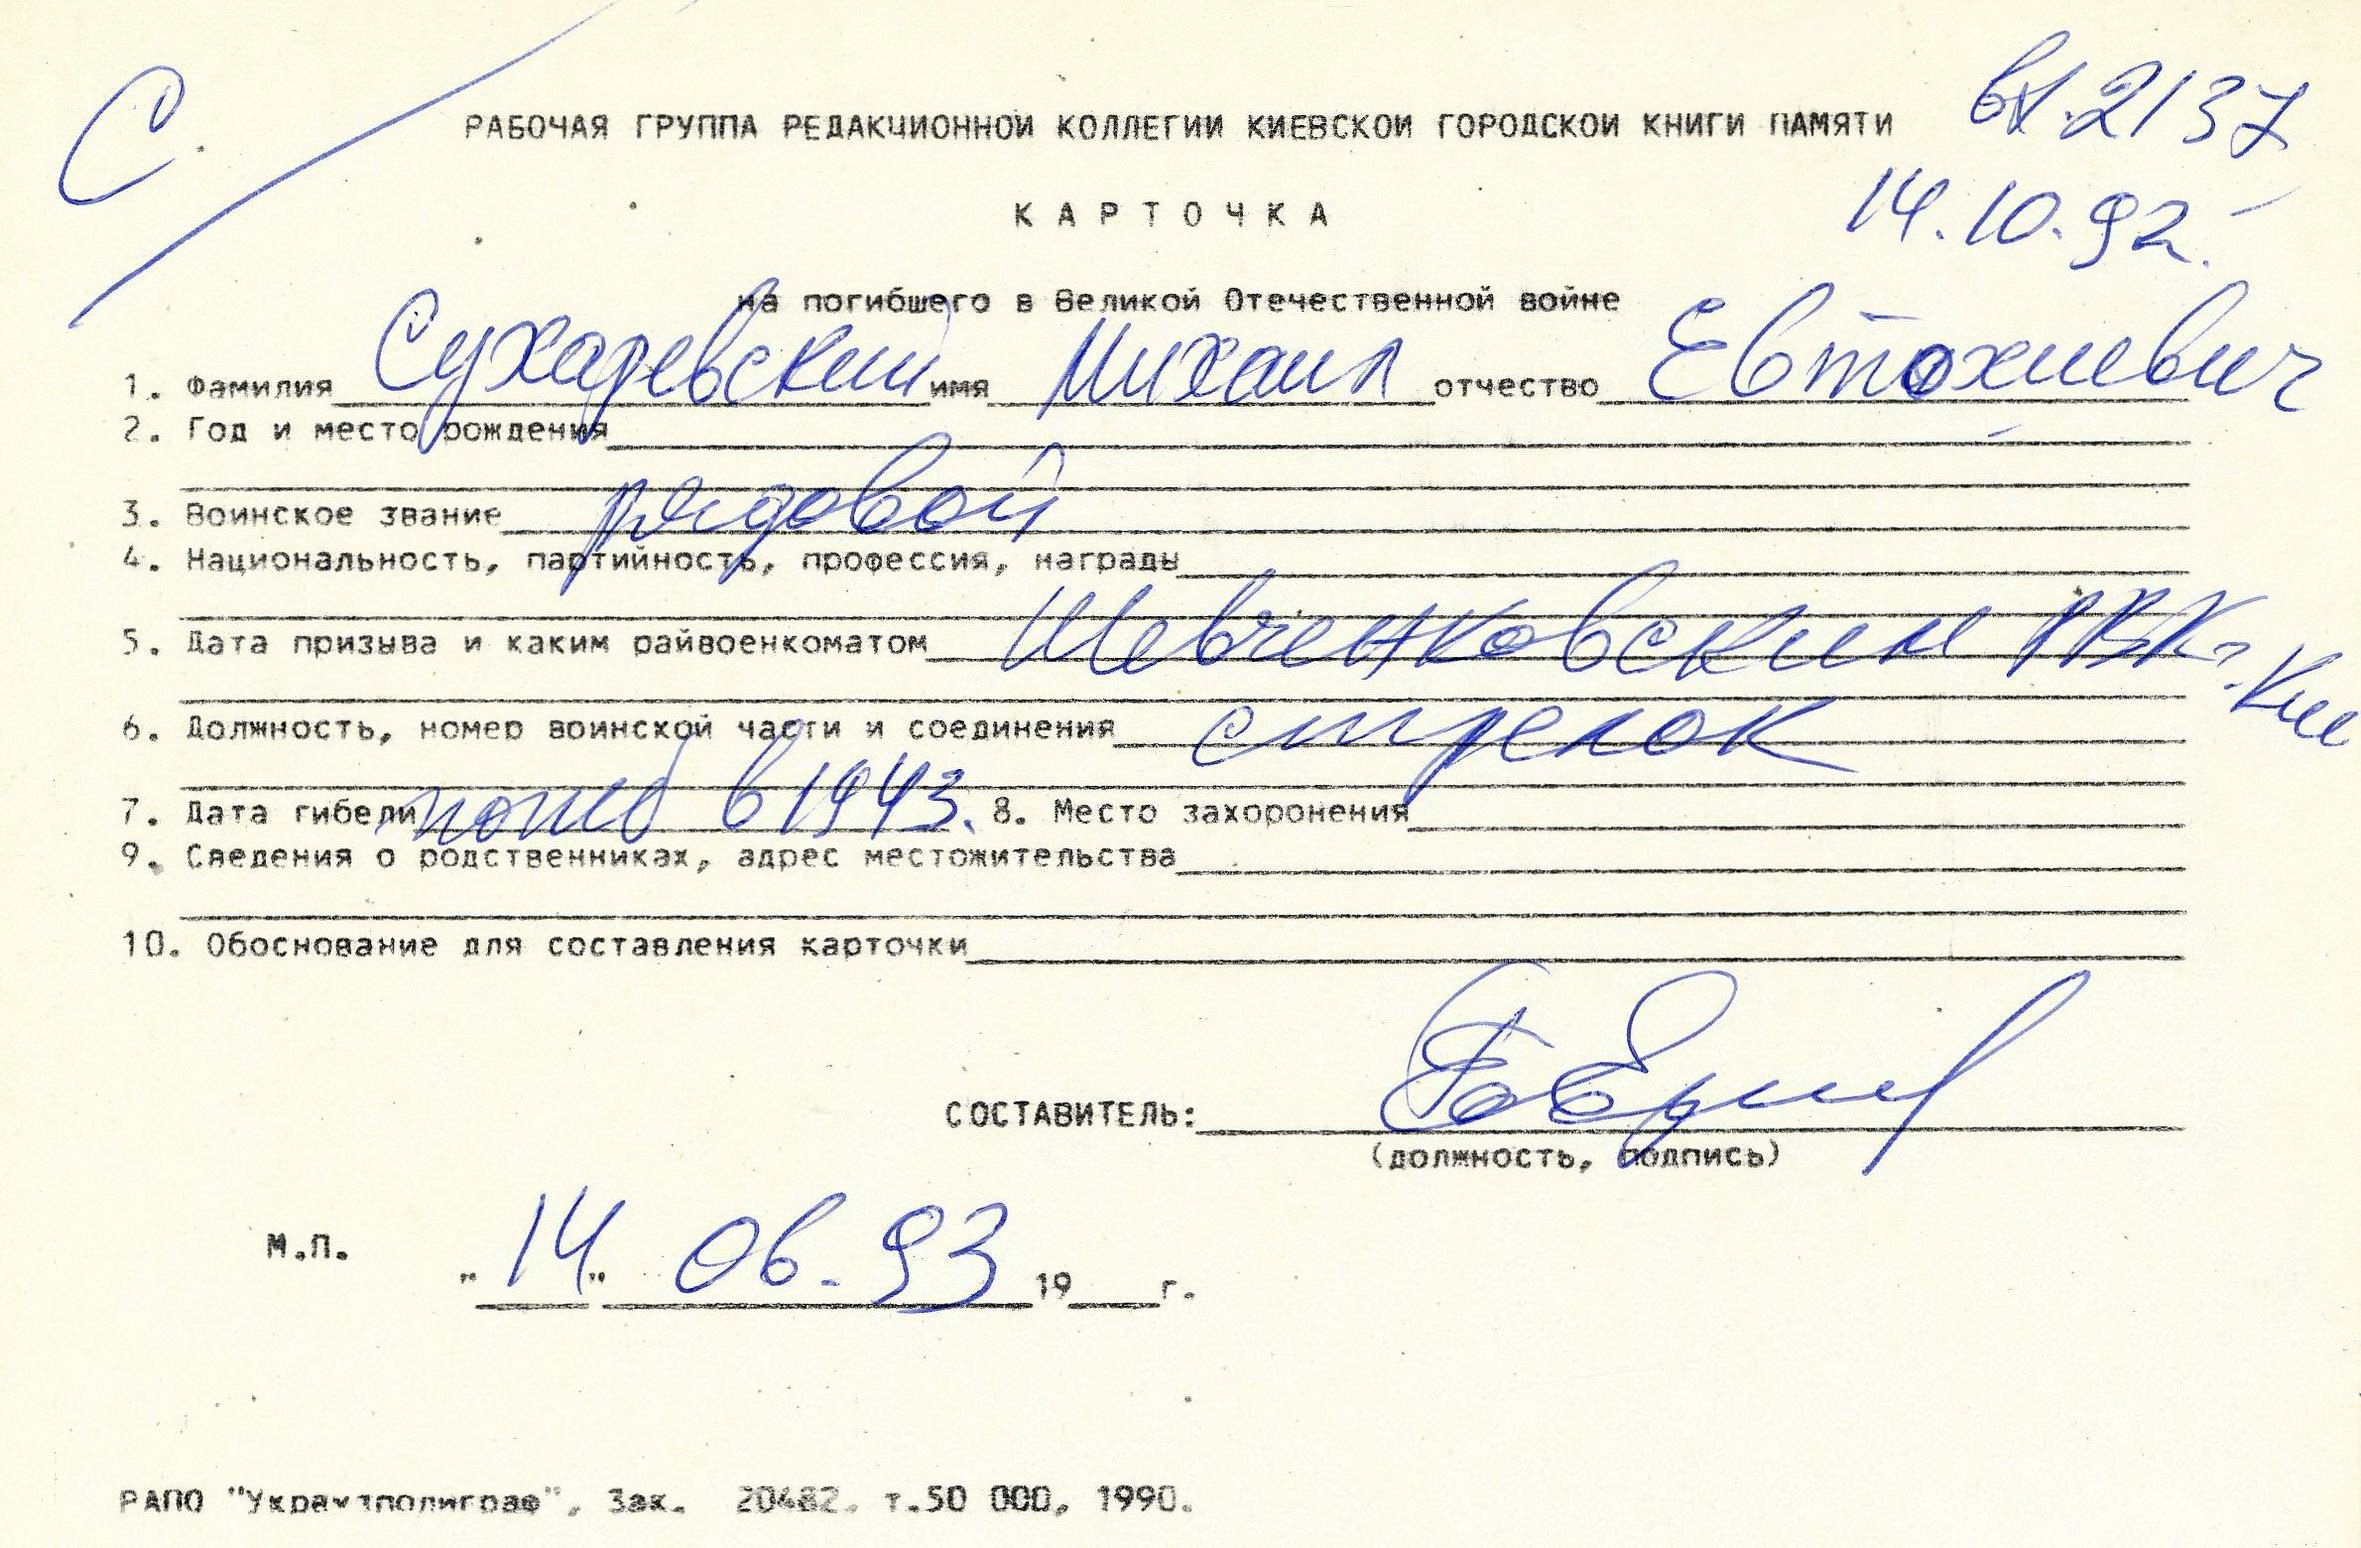 С.
вх. 2137
РАБОЧАЯ ГРУППА РЕДАКЦИОННОЙ КОЛЛЕГИИ КИЕВСКОЙ ГОРОДСКОЙ КНИГИ ПАМЯТИ
14.10.92.
К А Р Т О Ч К А
на погибшего в Великой Отечественной войне
1. Фамилия Сухаревский имя Михаил отчество Евтохиевич
2. Год и место рождения
3. Воинское звание рядовой
4. Национальность, партийность, профессия, награды
5. Дата призыва и каким райвоенкоматом Шевченковским РВК г. Кие
6. Должность, номер воинской части и соединения стрелок
7. Дата гибели погиб в 1943. 8. Место захоронения
9. Сведения о родственниках, адрес местожительства
10. Обоснование для составления карточки
СОСТАВИТЕЛЬ:
(должность, подпись)
М.П.
"14" 06.93 19 г.
РАПО "Укрвузполиграф", Зак. 20482. т.50 000, 1990.